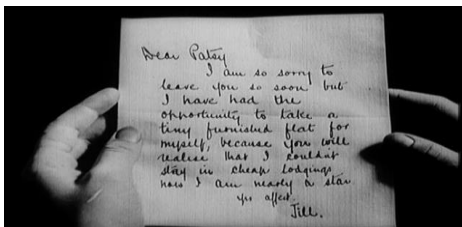 Dear Patsy
I am so sorry to
leave you so soon but
I have had the
opportunity to take a
tiny furnished flat for
myself, because you will
realise that I couldn't
stay in cheap lodgings
now I am nearly a star
yrs affect.
Jill.